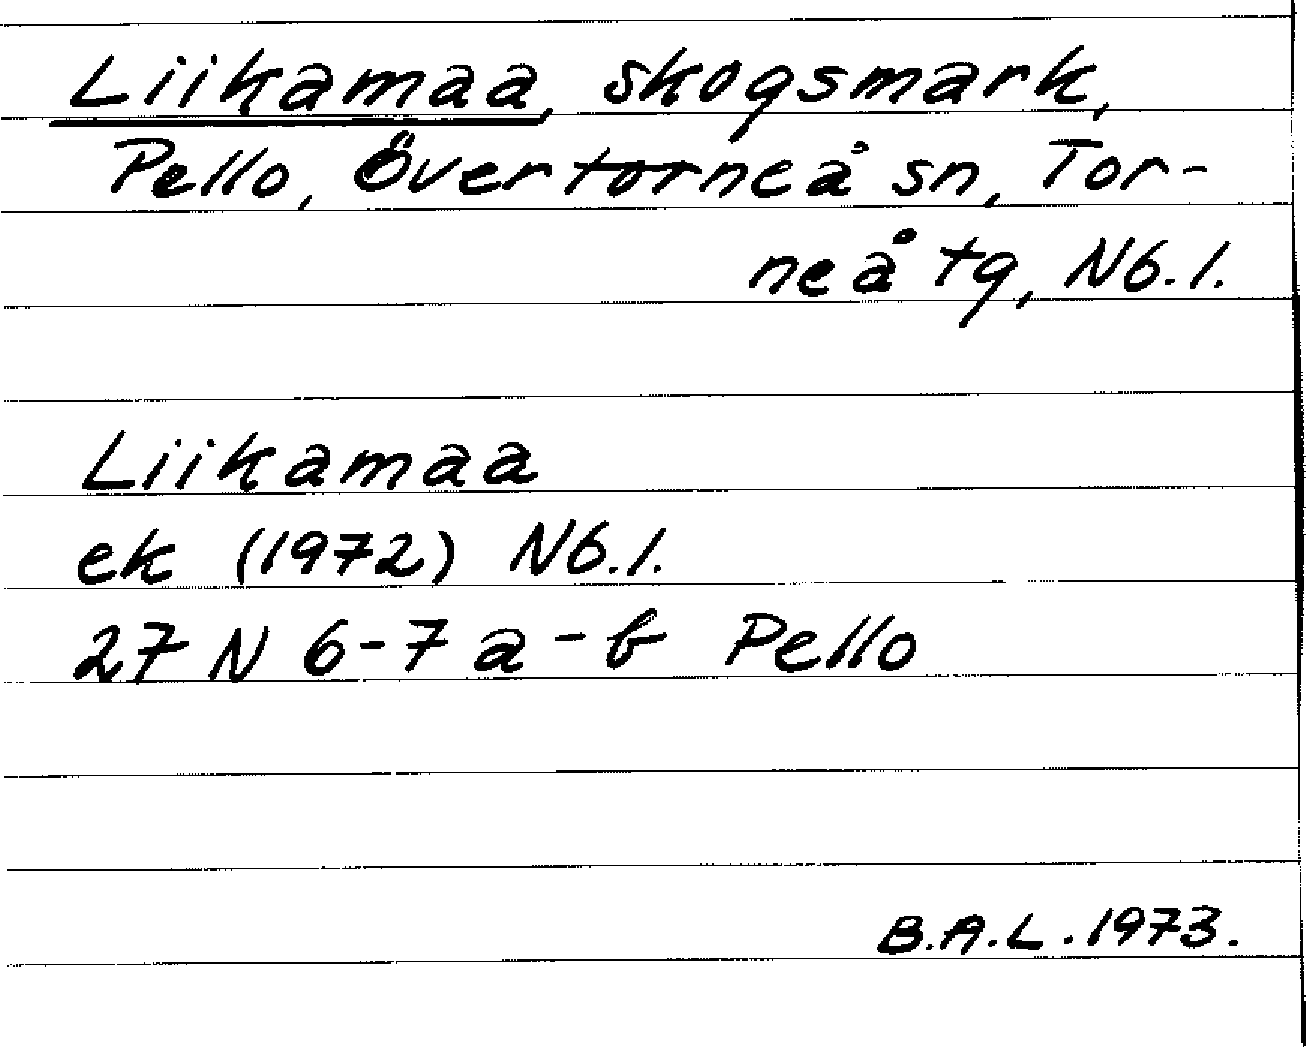 Liikamaa, skogsmark,
Pello, Övertorneå sn, Tor-
neå tg, Nb.l.
Liikamaa
ek (1972) Nb.l.
27 N 6-7 a-b Pello
B.A.L. 1973.